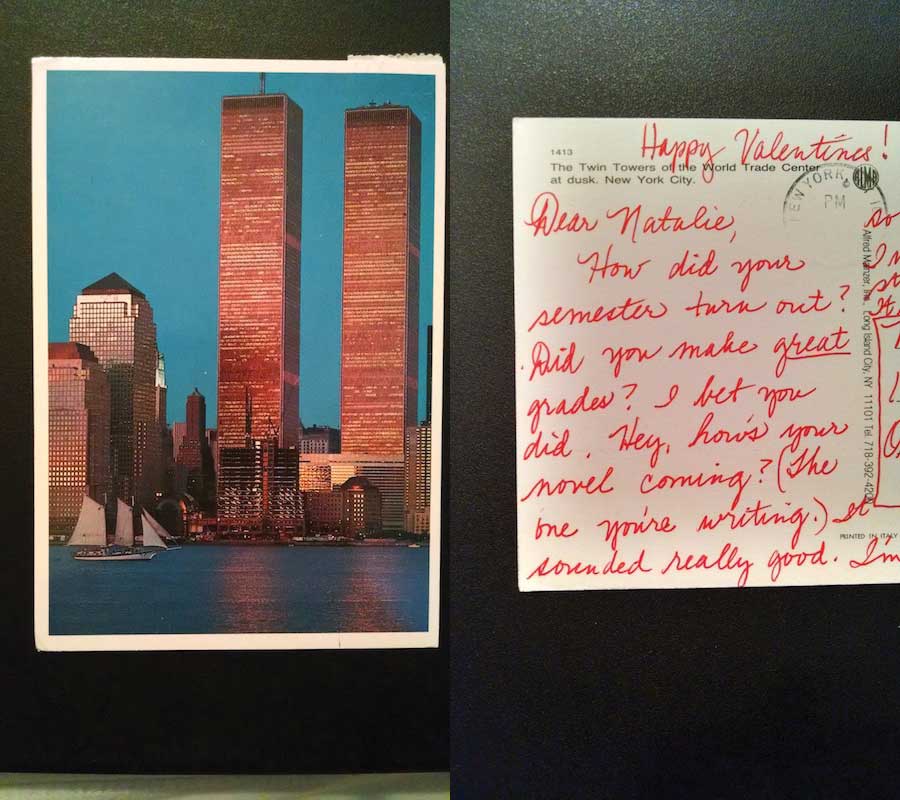 Happy Valentines!
1413
The Twin Towers of the World Trade Center
at dusk. New York City.
NEW YORK,
PM
ALMA
Dear Natalie,
How did your
semester turn out?
Did you make great
grades? I bet you
did. Hey, how's your
novel coming? (The
one you're writing.) It
sounded really good. I'm
so
Alfred Mainzer, Inc., Long Island City, NY 11101 Tel. 718-392-42
PRINTED IN ITALY